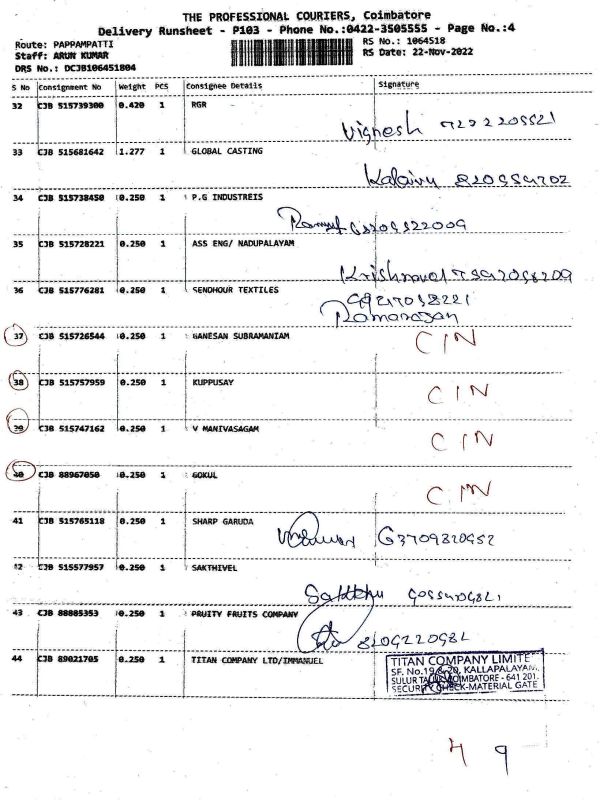 THE PROFESSIONAL COURIERS, Coimbatore
Delivery Runsheet - P103 - Phone No.:0422-3505555 - Page No.:4
Route: PAPPAMPATTI RS No.: 1064518
Staff: ARUN KUMAR RS Date: 22-Nov-2022
DRS No.: DCJB106451804
S No Consignment No Weight PCS Consignee Details Signature
32 CJB 515739300 0.420 1 RGR
Vignesh
33 CJB 515681642 1.277 1 GLOBAL CASTING
34 CJB 515738450 0.250 1 P.G INDUSTREIS
35 CJB 515728221 0.250 1 ASS ENG/ NADUPALAYAM
36 CJB 515776281 0.250 1 SENDHOUR TEXTILES
37 CJB 515726544 0.250 1 GANESAN SUBRAMANIAM C IN
38 CJB 515757959 0.250 1 KUPPUSAY C IN
39 CJB 515747162 0.250 1 V MANIVASAGAM C IN
40 CJB 88967050 0.250 1 GOKUL C IN
41 CJB 515765118 0.250 1 SHARP GARUDA
42 CJB 515577957 0.250 1 SAKTHIVEL
43 CJB 88885353 0.250 1 PRUITY FRUITS COMPANY
44 CJB 89021705 0.250 1 TITAN COMPANY LTD/IMMANUEL
TITAN COMPANY LIMITE
SF. No.19 & 20, KALLAPALAYAM,
SULUR TALUK, COIMBATORE - 641 201.
SECURITY CHECK-MATERIAL GATE
4 9